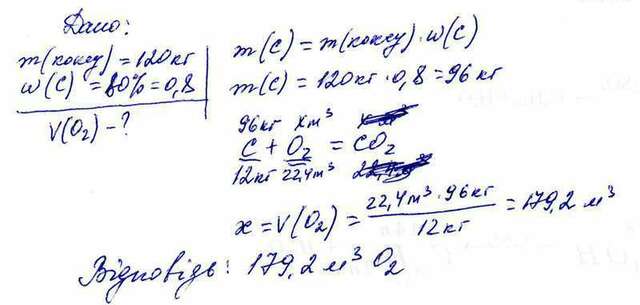 Дано:
m(коксу) = 120кг
w(C) = 80% = 0,8
V(O₂) - ?
m(C) = m(коксу) · w(C)
m(C) = 120кг · 0,8 = 96 кг
96кг xm³
C + O₂ = CO₂
12кг 22,4m³
x = V(O₂) = 22,4m³ · 96кг / 12кг = 179,2 м³
Відповідь: 179,2 м³ O₂